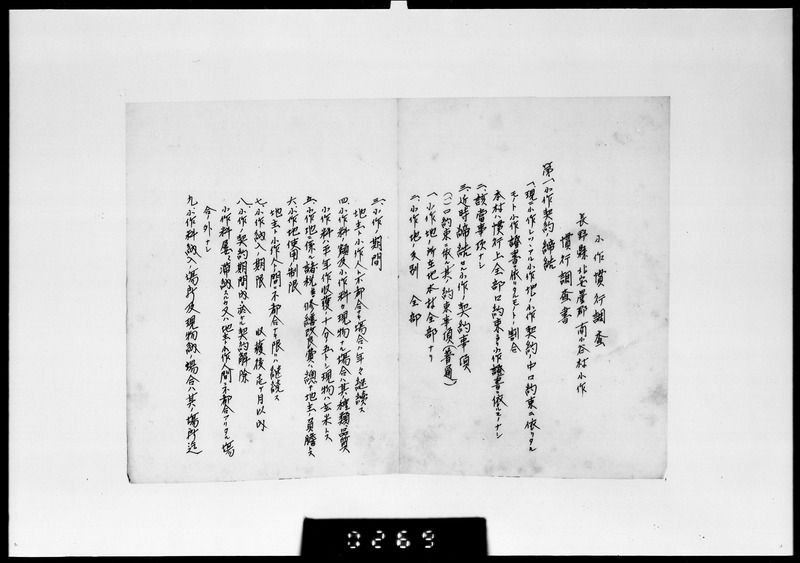 小作慣行調査
長野縣北安曇郡南小谷村小作
慣行調査書
第一、小作契約ノ締結
一、現ニ小作シツヽアル小作地ノ小作契約中口約束ニ依リタル
モノト小作證書ニ依リタルモノトノ割合
本村ハ慣行上全部口約束ニシテ小作證書ニ依ルモノナシ
二、該當事項ナシ
三、近時締結セル小作ノ契約事項
(一)口約束ニ依ル其ノ約束事項(普通)
一、小作地ノ所在地本村全部ナリ
二、小作地ノ反別 全部
三、小作期間
地主ト小作人ト不都合ナキ場合ハ年々継続ス
四、小作料額及小作料ガ現物ナル場合ハ其ノ種類品質
小作料ハ平年作収獲ノ十分ノ五トシ現物ハ玄米トス
五、小作地ニ係ル諸税並修繕改良費ハ總テ地主ノ負膽トス
六、小作地使用ノ制限
地主ト小作人トノ間ニ不都合ナキ限リハ継続ス
七、小作納入ノ期限 収獲後壱ケ月以内
八、小作ノ契約期間内ニ於ケル契約解除
小作料屡々滞納スルカ又ハ地主小作人間ニ不都合アリタル場
合ノ外ナシ
九、小作料納入ノ場所及現物納ノ場合ハ其ノ場所迄
0269